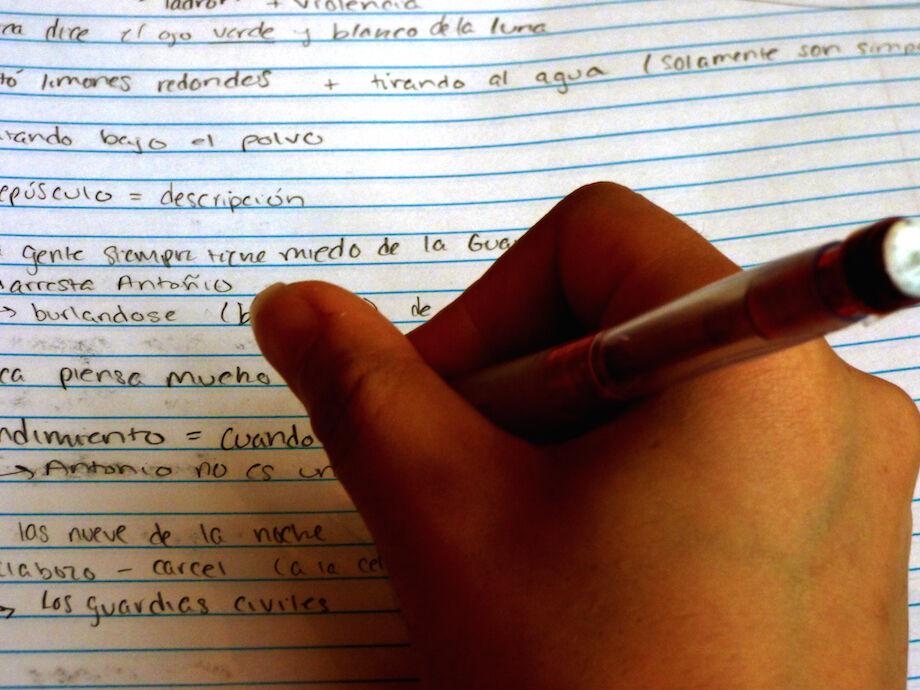 ladron + violencia
dice el ojo verde y blanco de la luna
limones redondes + tirando al agua (solamente son
bajo el polvo
= descripción
gente siempre tiene miedo de la
arresta Antoñio
→ burlandose ( ) de
piensa mucho
= cuando
→ Antonio no es un
las nueve de la noche
- carcel (a la
→ Los guardias civiles